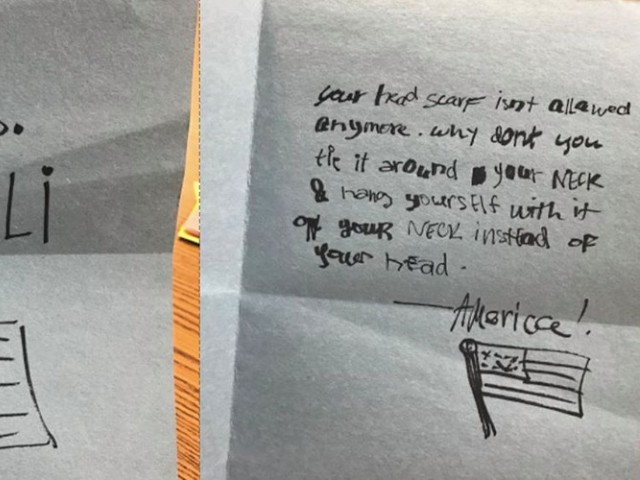 Li
your head scarf isnt allowed
anymore. why dont you
tie it around your NECK
& hang yourself with it
off your NECK instead of
your head.
—America!